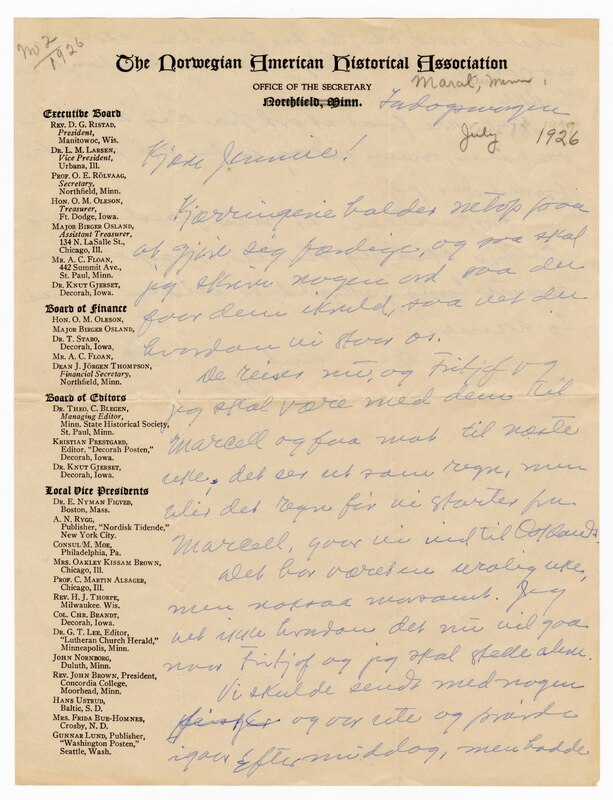 No 2
1926
The Norwegian American Historical Association
OFFICE OF THE SECRETARY
Northfield, Minn.
Marcell, Minn.
July 1926
Executive Board
REV. D. G. RISTAD,
President,
Manitowoc, Wis.
DR. L. M. LARSEN,
Vice President,
Urbana, Ill.
PROF. O. E. RÖLVAAG,
Secretary,
Northfield, Minn.
HON. O. M. OLESON,
Treasurer,
Ft. Dodge, Iowa.
MAJOR BIRGER OSLAND,
Assistant Treasurer,
134 N. LaSalle St.,
Chicago, Ill.
MR. A. C. FLOAN,
442 Summit Ave.,
St. Paul, Minn.
DR. KNUT GJERSET,
Decorah, Iowa.
Board of Finance
HON. O. M. OLESON,
MAJOR BIRGER OSLAND,
DR. T. STABO,
Decorah, Iowa.
MR. A. C. FLOAN,
DEAN J. JÖRGEN THOMPSON,
Financial Secretary,
Northfield, Minn.
Board of Editors
DR. THEO. C. BLEGEN,
Managing Editor,
Minn. State Historical Society,
St. Paul, Minn.
KRISTIAN PRESTGARD,
Editor, "Decorah Posten,"
Decorah, Iowa.
DR. KNUT GJERSET,
Decorah, Iowa.
Local Vice Presidents
DR. E. NYMAN FIGVED,
Boston, Mass.
A. N. RYGG,
Publisher, "Nordisk Tidende,"
New York City.
CONSUL M. MOE,
Philadelphia, Pa.
MRS. OAKLEY KISSAM BROWN,
Chicago, Ill.
PROF. C. MARTIN ALSAGER,
Chicago, Ill.
REV. H. J. THORPE,
Milwaukee. Wis.
COL. CHR. BRANDT,
Decorah, Iowa.
DR. G. T. LEE, Editor,
"Lutheran Church Herald,"
Minneapolis, Minn.
JOHN NORNBORG,
Duluth, Minn.
REV. JOHN BROWN, President,
Concordia College,
Moorhead, Minn.
HANS USTRUD,
Baltic, S. D.
MRS. FRIDA BUE-HOMNES,
Crosby, N. D.
GUNNAR LUND, Publisher,
"Washington Posten,"
Seattle, Wash.
Kjære Jennie!
Kjærringene holder netop paa
at gjøre sig færdige, og saa skal
jeg skrive nogen ord saa du
faar dem ikveld, saa vet du
hvordan vi staar os.
De reiser nu, og Fritjof og
jeg skal være med dem til
Marcell og faa mat til næste
uke, det ser ut som regn, men
blir det regn før vi starter fra
Marcell, gaar vi ind til
Det har været en urolig uke,
men noksaa morsomt. Jeg
vet ikke hvordan det nu vil gaa
naar Fritjof og jeg skal stelle alene.
Vi skulde sendt med nogen
og var ute og prøvde
igaar Eftermiddag, men hadde